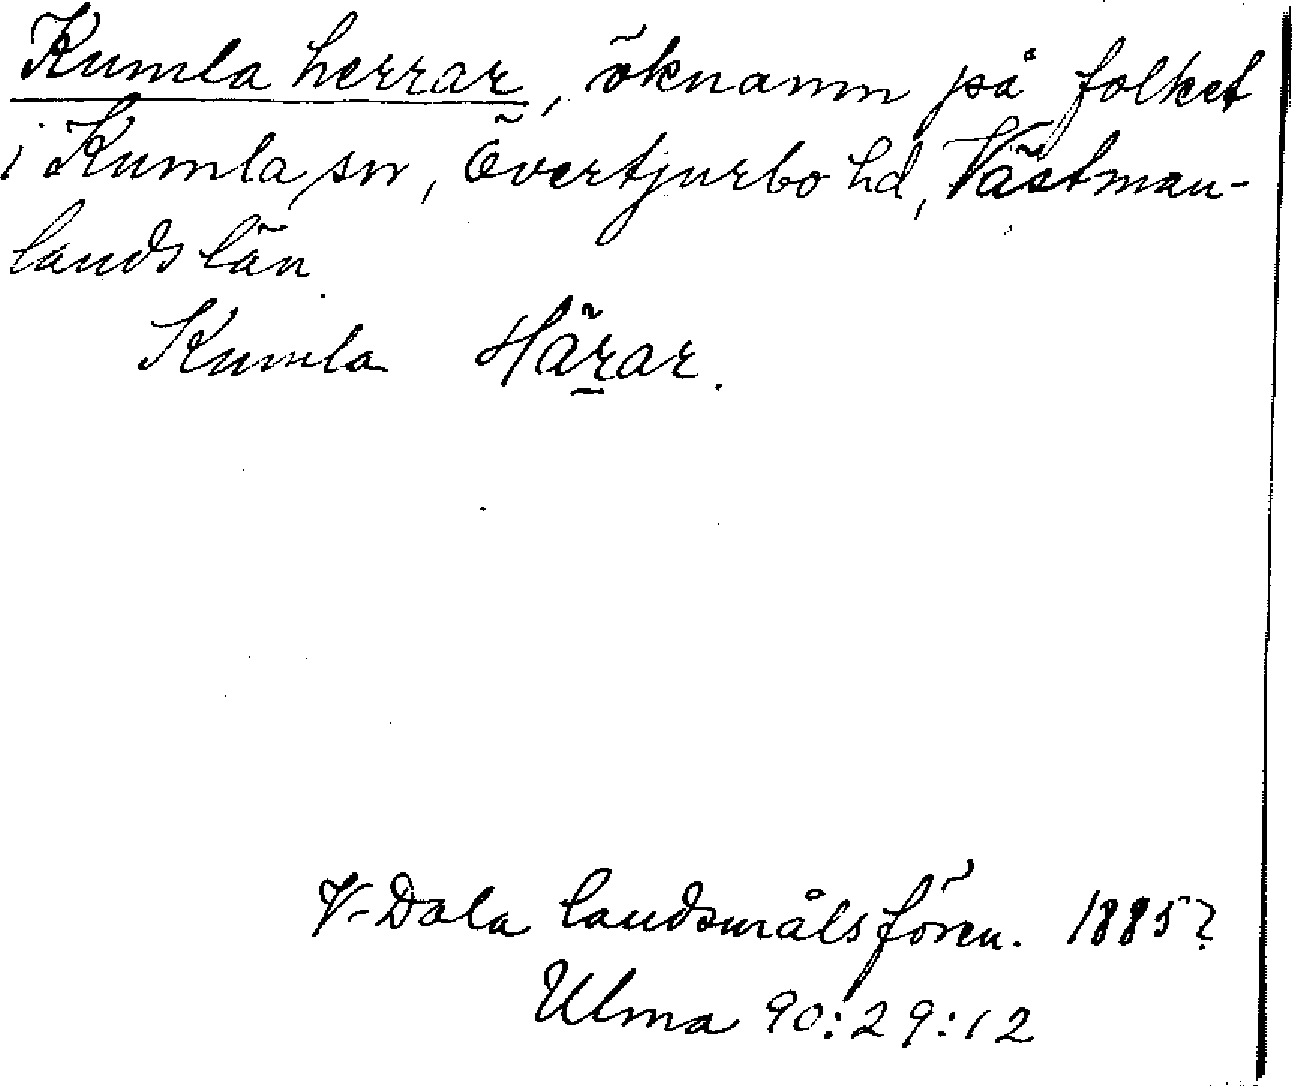 Kumla herrar, öknamn på folket
i Kumla sn, Övertjurbo hd, Västman-
lands län.
Kumla Härar.
V-Dala landsmålsfören. 1885?
Ulma 90:29:12